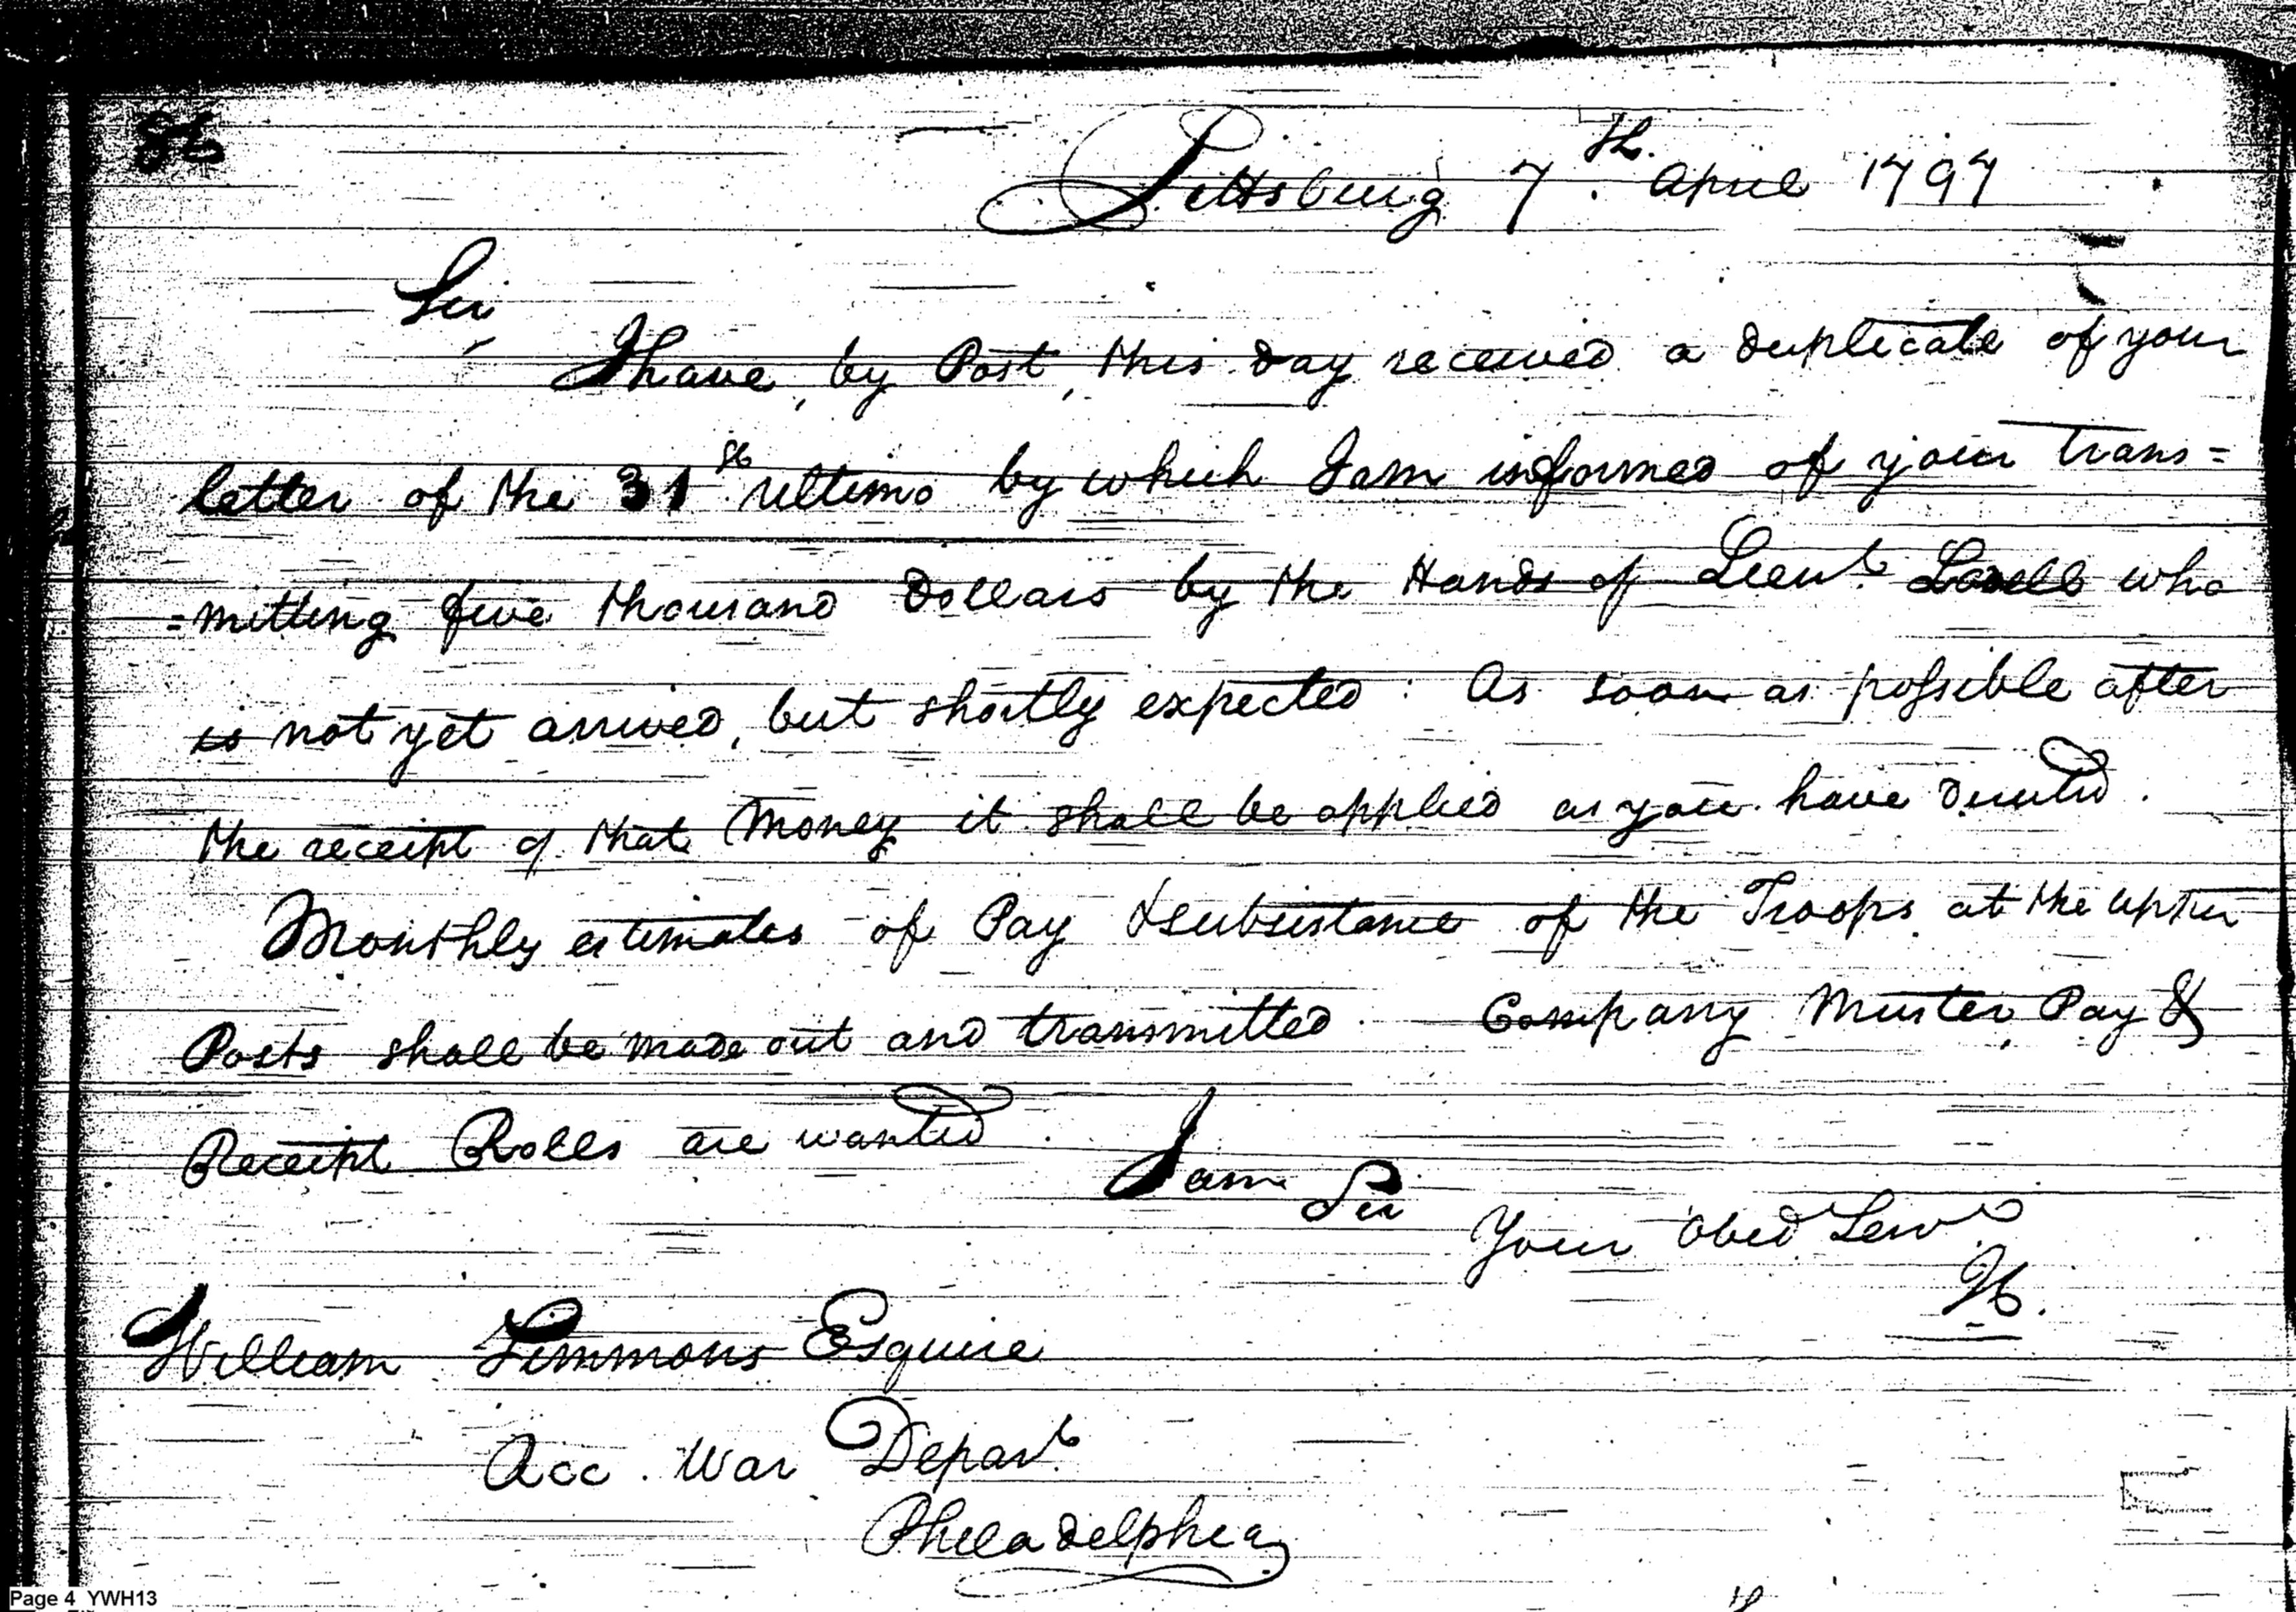 86
Pittsburg 7th. April 1797
Sir
I have, by Post, this day received a duplicate of your
letter of the 31st ultimo by which I am informed of your trans=
=mitting five thousand Dollars by the Hands of Lieut. Lovell who
is not yet arrived, but shortly expected: As soon as possible after
the receipt of that Money it shall be applied as you have directed.
Monthly estimates of Pay & subsistance of the Troops at the upper
Posts shall be made out and transmitted. Company Muster, Pay &
Receipt Rolls are wanted.
I am Sir
Your Obed Servt
H.
William Simmons Esquire
Acc. War Depart.
Philadelphia
Page 4 YWH13